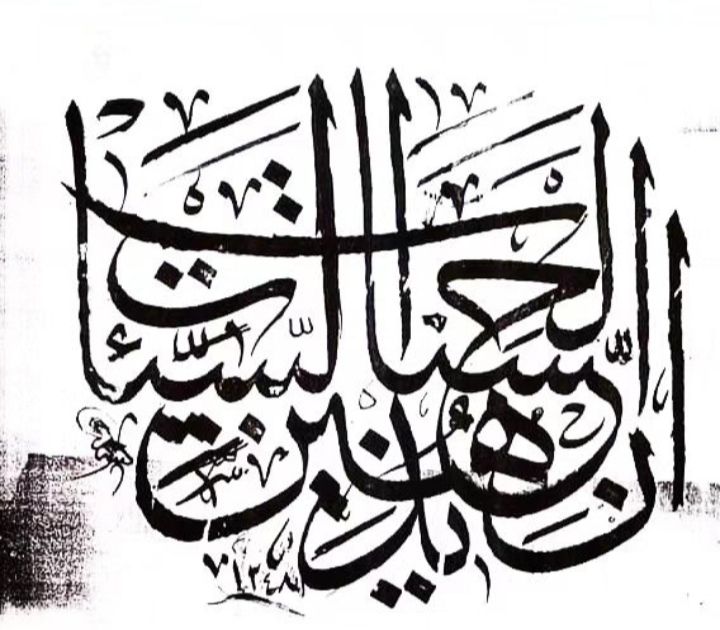 ان الحسنات يذهبن السيئات